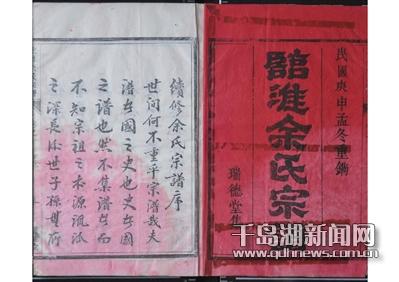 民國庚申孟冬重鐫
余氏宗
瑞德堂集
續修余氏宗譜序
世間何不重乎宗譜哉夫
譜與國之史也史與國
之譜也然不集譜與而
不知宗祖之本源流派
之深是
世子孫
千岛湖新闻网